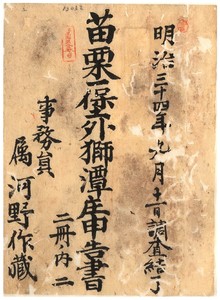 明治三十四年九月十一日調査結了
苗栗一保外獅潭庄申告書
二冊内二
事務員
属 河野作藏